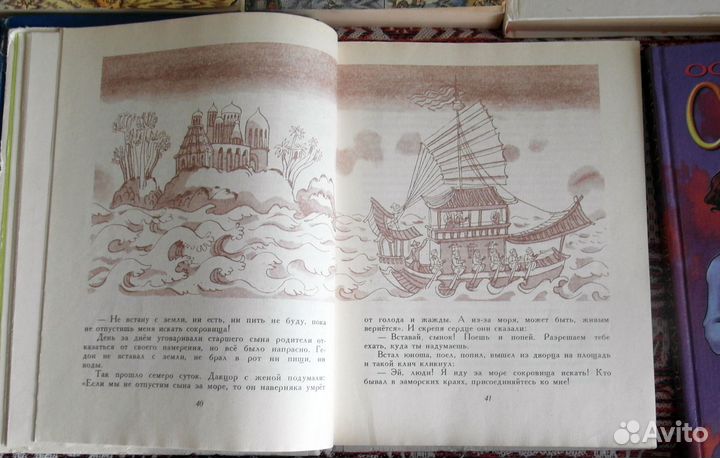 — Не встану с земли, ни есть, ни пить не буду, пока
не отпустишь меня искать сокровища!
День за днём уговаривали старшего сына родители от-
казаться от своего намерения, но всё было напрасно. Ге-
док не вставал с земли, не брал в рот ни пищи, ни
воды.
Так прошло семеро суток. Дакцор с женой подумали:
«Если мы не отпустим сына за море, то он наверняка умрёт
40
от голода и жажды. А из-за моря, может быть, живым
вернётся». И скрепя сердце они сказали:
— Вставай, сынок! Поешь и попей. Разрешаем тебе
ехать, куда ты надумаешь.
Встал юноша, поел, попил, вышел из дворца на площадь
и такой клич кликнул:
— Эй, люди! Я иду за море сокровища искать! Кто
бывал в заморских краях, присоединяйтесь ко мне!
41
ОС
Avito